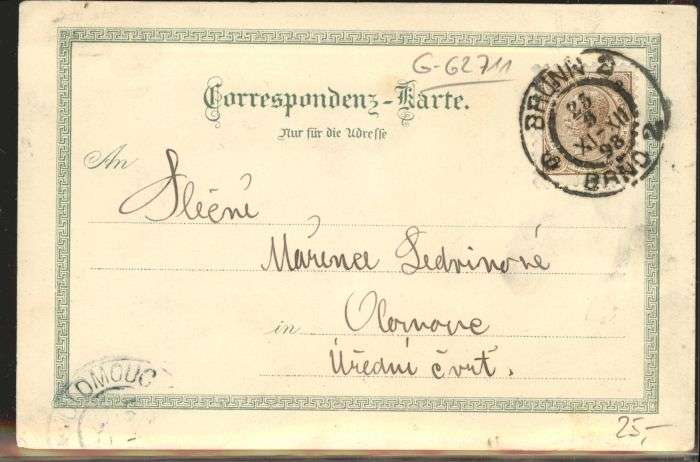 G-62711
Correspondenz-Karte.
Nur für die Adresse
BRÜNN 2
BRNO 2
98
An Slečně
Mařence Ledvinové
in Olomouc
Úřední čvrť.
OLOMOUC
25,-